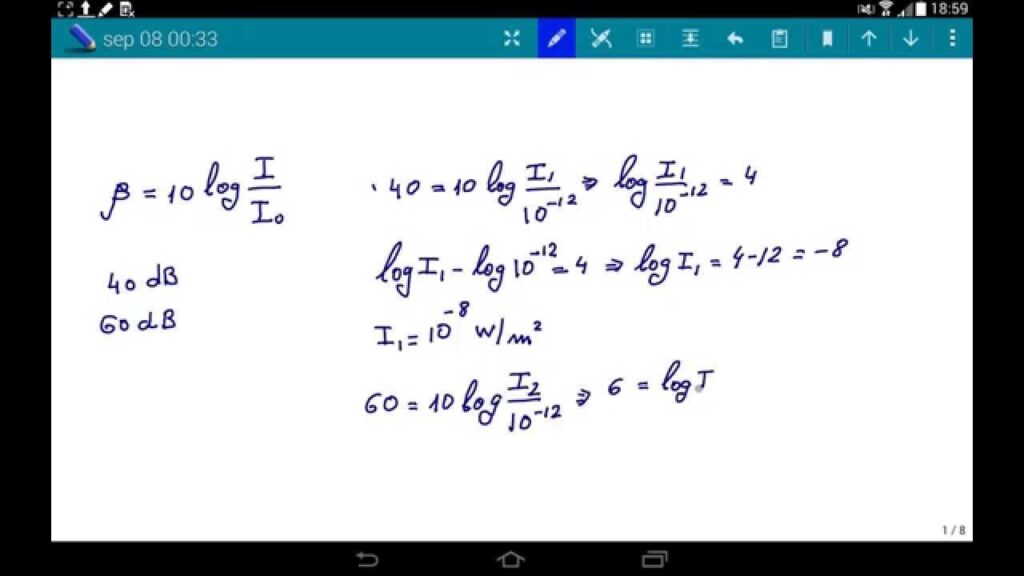 18:59
sep 08 00:33
β = 10 log I/I₀
40 dB
60 dB
· 40 = 10 log I₁/10⁻¹² ⇒ log I₁/10⁻¹² = 4
log I₁ - log 10⁻¹² = 4 ⇒ log I₁ = 4-12 = -8
I₁ = 10⁻⁸ W/m²
60 = 10 log I₂/10⁻¹² ⇒ 6 = log I
1 / 8